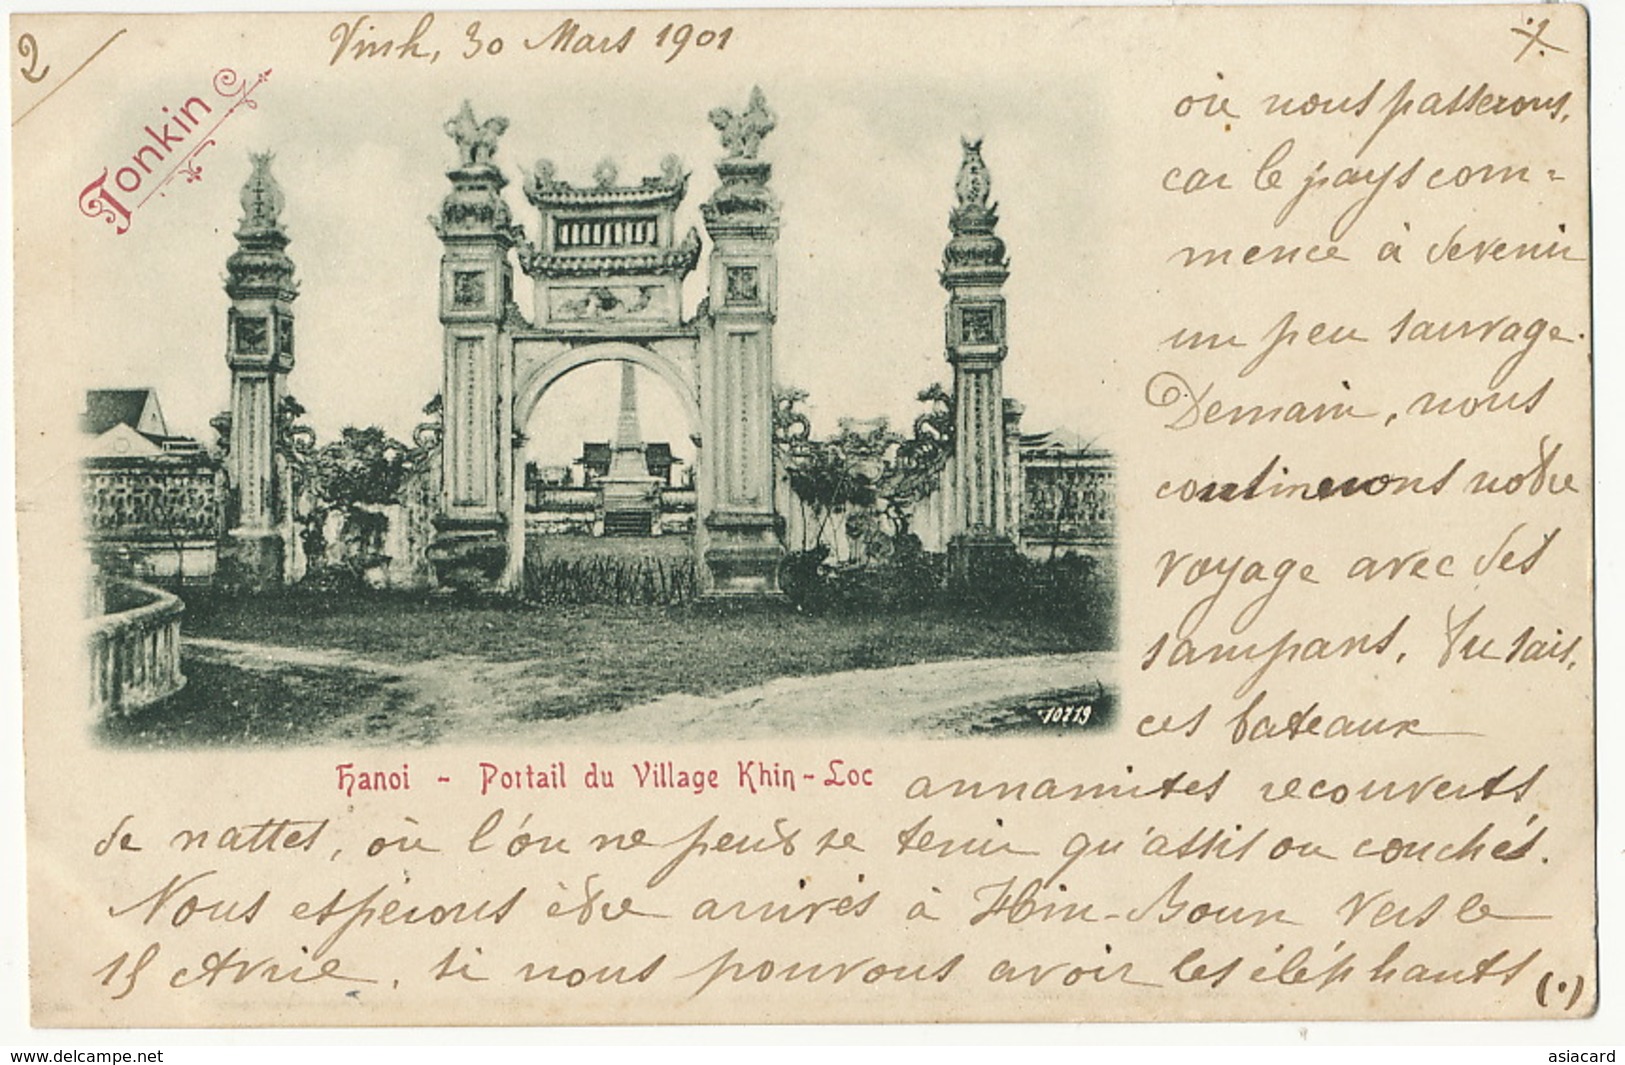 2
Vinh, 30 Mars 1901
Tonkin
où nous passerons,
car le pays com=
mence à devenir
un peu sauvage.
Demain, nous
continuerons notre
voyage avec des
sampans. Tu sais,
ces bateaux
10719
Hanoi - Portail du Village Khin-Loc
annamites recouverts
de nattes, où l'on ne peut se tenir qu'assis ou couchés.
Nous espérons être arrivés à Hin-Boun vers le
15 Avril, si nous pouvons avoir les éléphants (.)
www.delcampe.net
asiacard